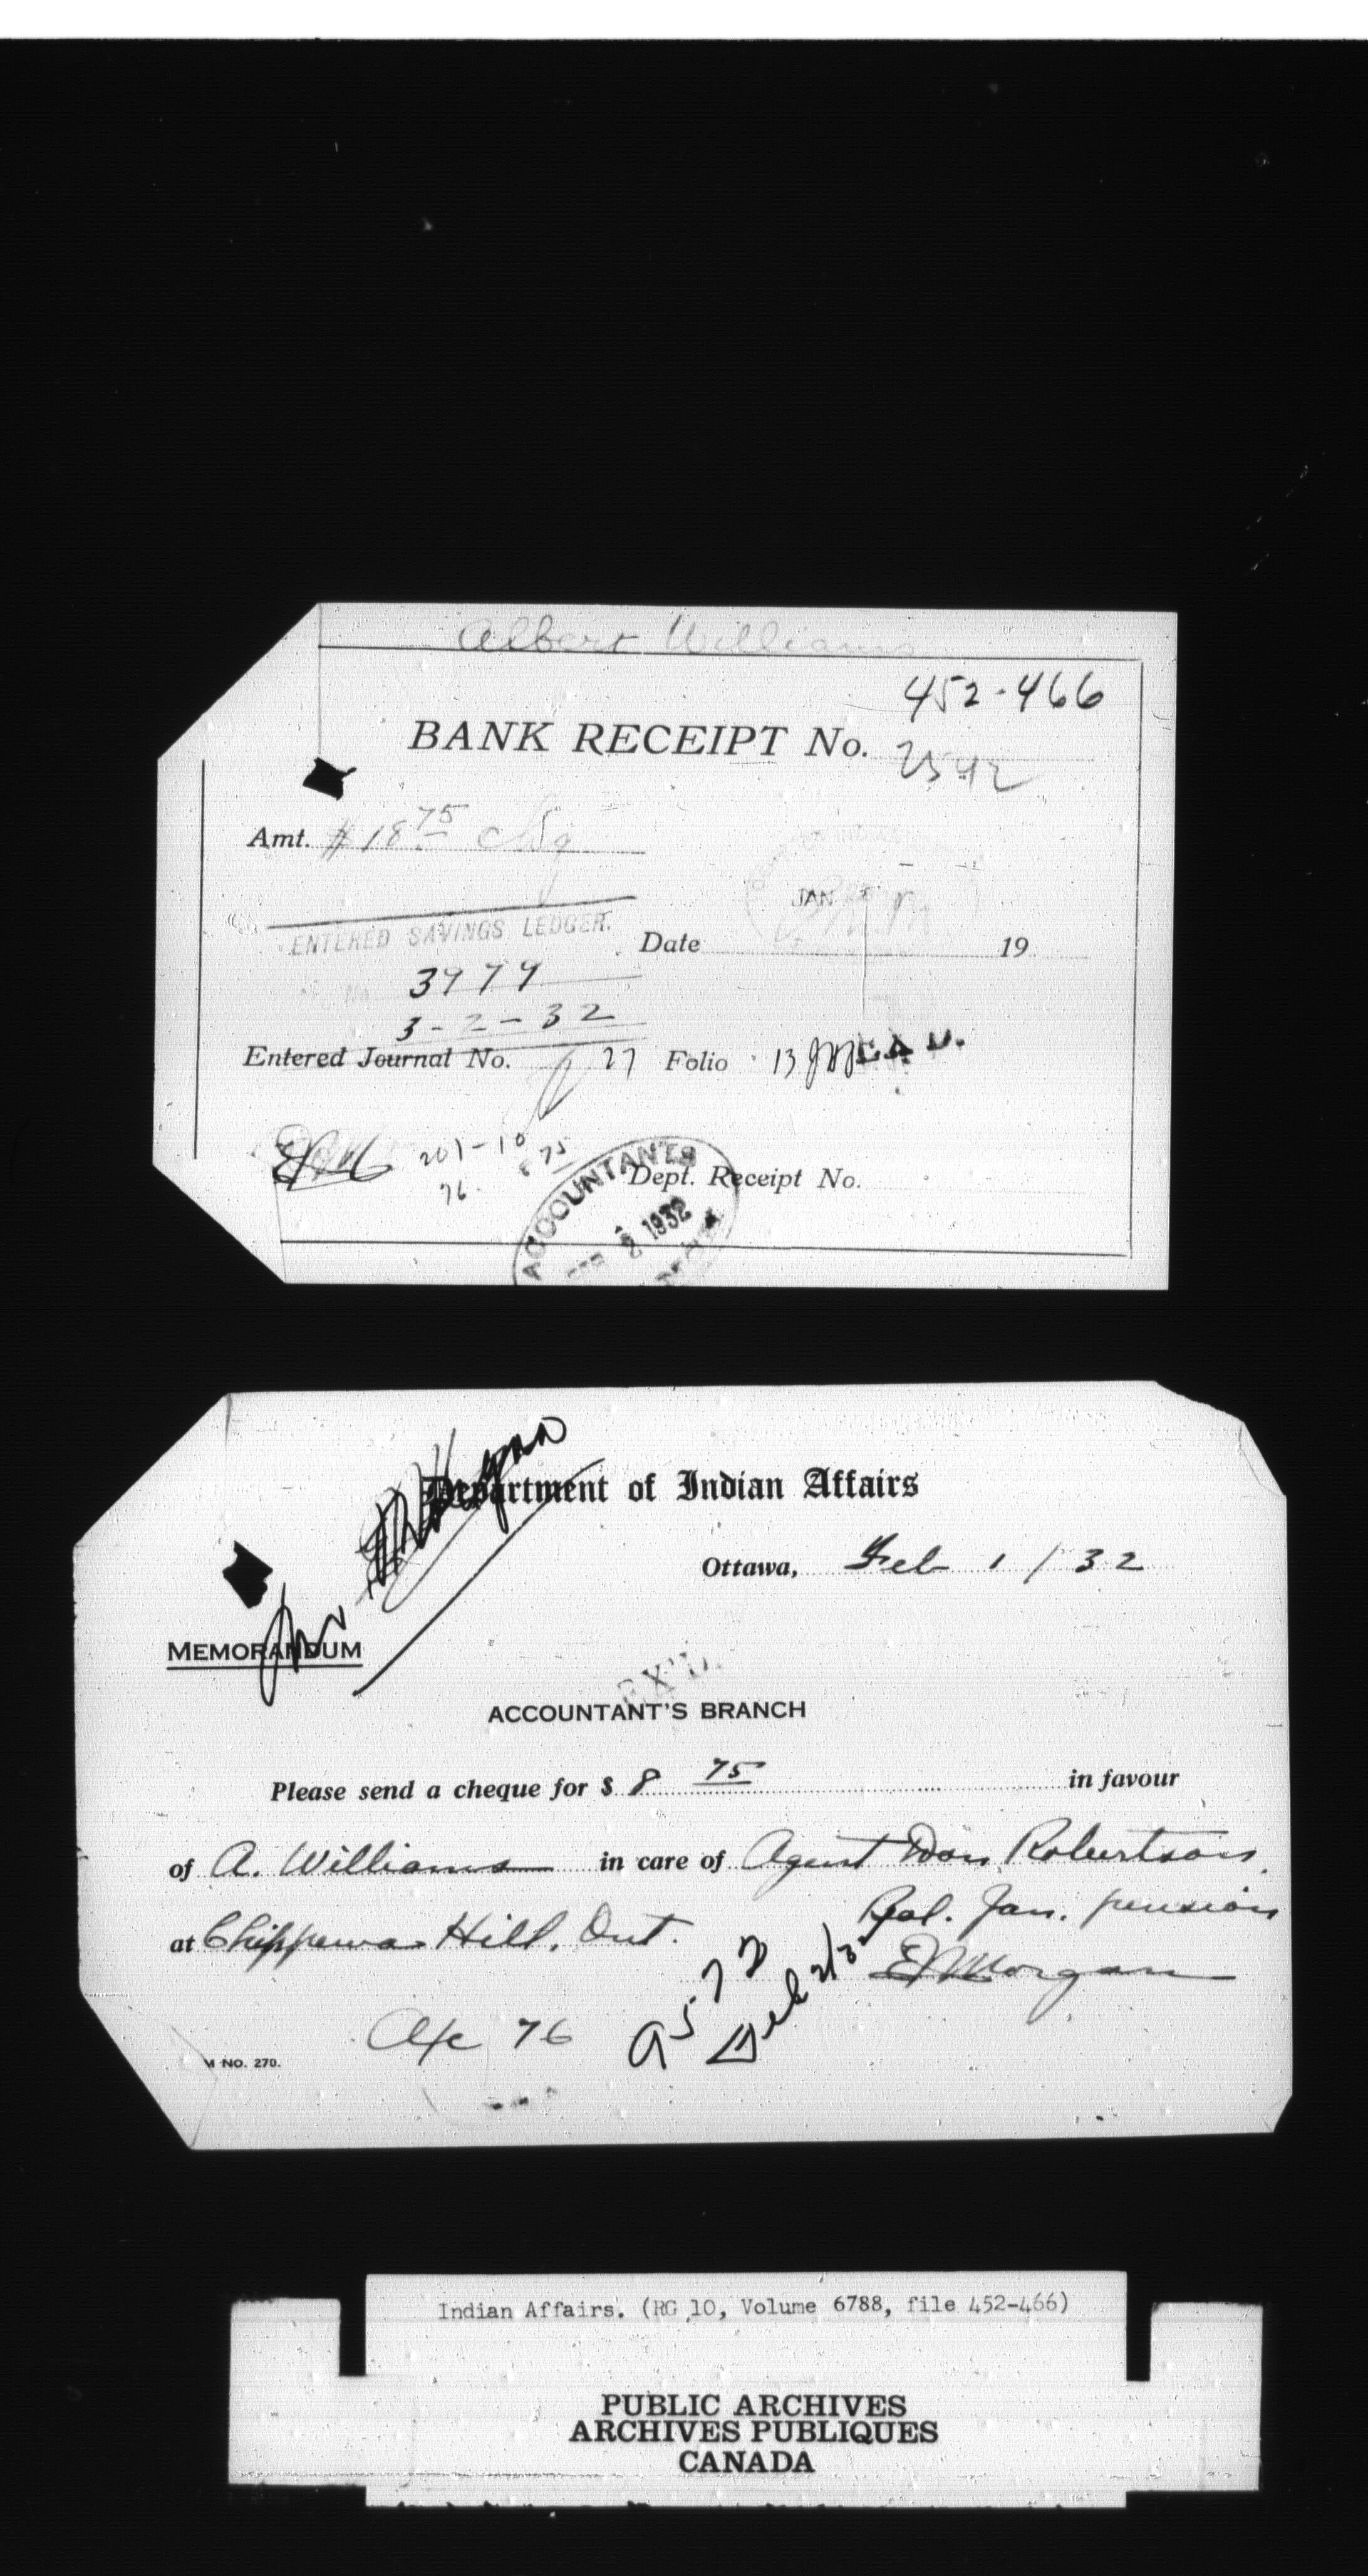 Albert Williams
452-466
BANK RECEIPT No. 2542
Amt. $18 75
JAN
ENTERED SAVINGS LEDGER.
Date 19
No 3979
3-2-32
Entered Journal No. 27 Folio 13
201-10
8 75
76.
Dept. Receipt No.
ACCOUNTANT'S
FEB 2 1932
Department of Indian Affairs
Ottawa, Feb 1/32
MEMORANDUM
EX'D.
ACCOUNTANT'S BRANCH
Please send a cheque for $ 8 75 in favour
of A. Williams in care of Agent Don Robertson
at Chippewa Hill, Ont. Bal. Jan. pension
EMorgan
Feb 2/32
A/c 76
M NO. 270.
Indian Affairs. (RG 10, Volume 6788, file 452-466)
PUBLIC ARCHIVES
ARCHIVES PUBLIQUES
CANADA